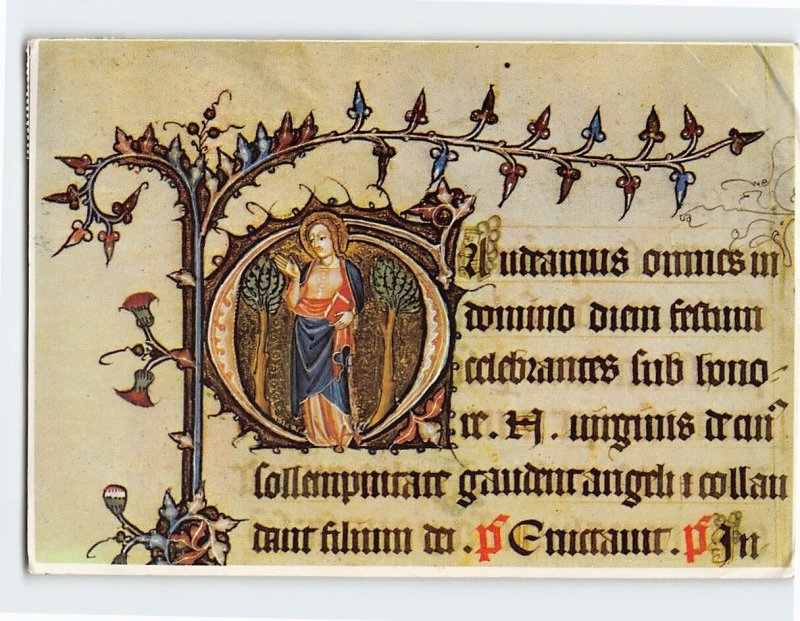 GAudeamus omnes in
domino diem festum
celebrantes sub hono-
re. N. uirginis de cuiꝰ
sollempnitate gaudent angeli ⁊ collau
dant filium dei . p̃ Eructauit . p̃ In